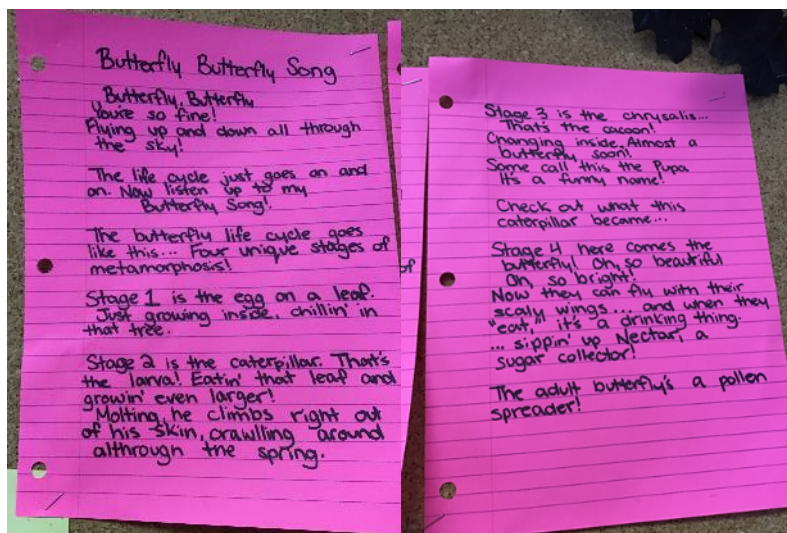 Butterfly Butterfly Song
Butterfly, Butterfly
You're so fine!
Flying up and down all through
the sky!
The life cycle just goes on and
on. Now listen up to my
Butterfly Song!
The butterfly life cycle goes
like this... Four unique stages of
metamorphosis!
Stage 1 is the egg on a leaf.
Just growing inside, chillin' in
that tree.
Stage 2 is the caterpillar. That's
the larva! Eatin' that leaf and
growin' even larger!
Molting, he climbs right out
of his skin, crawlling around
althrough the spring.
of
Stage 3 is the chrysalis...
That's the cacoon!
Changing inside. Almost a
butterfly soon!
Some call this the Pupa
Its a funny name!
Check out what this
caterpillar became...
Stage 4 here comes the
butterfly! Oh, so beautiful
Oh, so bright!
Now they can fly with their
scaly wings... and when they
"eat," it's a drinking thing.
... sippin' up Nectar, a
sugar collector!
The adult butterfly's a pollen
spreader!